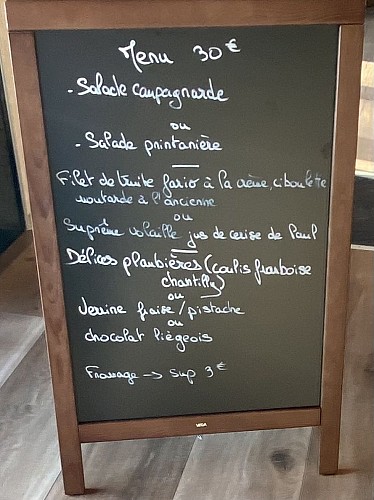 Menu 30€
- Salade campagnarde
ou
- Salade printanière
Filet de truite fario à la crème, ciboulette
moutarde à l'ancienne
ou
Suprême volaille jus de cerise de Paul
Délices plombières (coulis framboise
chantilly)
ou
Verrine fraise/pistache
ou
chocolat liégeois
Fromage → sup 3€